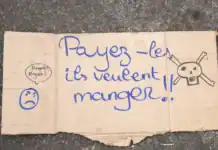 Payez-les
ils veulent
manger!!